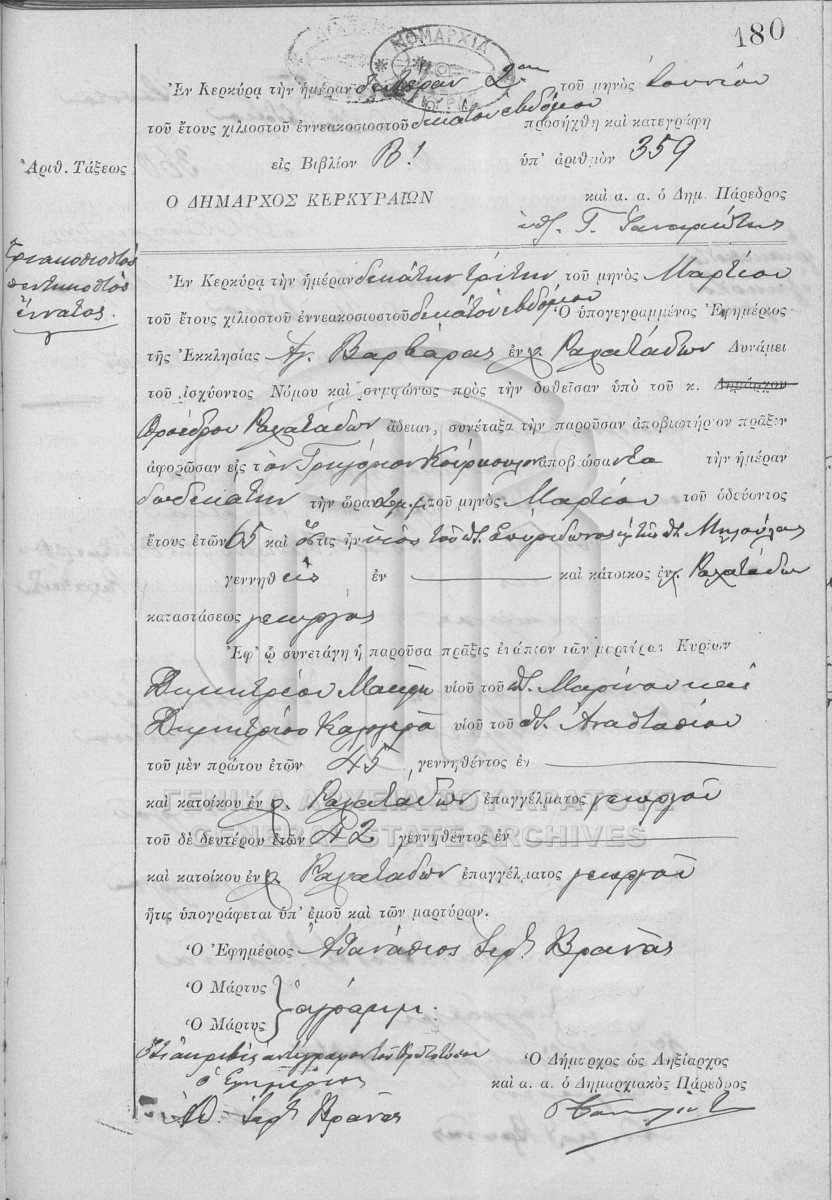 180
ΝΟΜΑΡΧΙΑ
Ἐν Κερκύρᾳ τὴν ἡμέραν δευτέραν 2αν τοῦ μηνὸς Ἰουνίου
τοῦ ἔτους χιλιοστοῦ ἐννεακοσιοστοῦ δεκάτου ἑβδόμου προσήχθη καὶ κατεγράφη
Ἀριθ. Τάξεως εἰς Βιβλίον Β! ὑπ' ἀριθμὸν 359
Ο ΔΗΜΑΡΧΟΣ ΚΕΡΚΥΡΑΙΩΝ καὶ α. α. ὁ Δημ. Πάρεδρος
Γ.
Τριακοσιοστὸς
πεντηκοστὸς
ἔννατος.
Ἐν Κερκύρᾳ τὴν ἡμέραν δεκάτην τρίτην τοῦ μηνὸς Μαρτίου
τοῦ ἔτους χιλιοστοῦ ἐννεακοσιοστοῦ δεκάτου ἑβδόμου Ὁ ὑπογεγραμμένος Ἐφημέριος
τῆς Ἐκκλησίας Ἁγ. Βαρβάρας ἐν χ. Ραχατάδων Δυνάμει
τοῦ ἰσχύοντος Νόμου καὶ συμφώνως πρὸς τὴν δοθεῖσαν ὑπὸ τοῦ κ. Δημάρχου
Προέδρου Ραχατάδων ἄδειαν, συνέταξα τὴν παροῦσαν ἀποβιωτήριον πρᾶξιν
ἀφορῶσαν εἰς τὸν Γρηγόριον ἀποβιώσαντα τὴν ἡμέραν
δωδεκάτην τὴν ὥραν τοῦ μηνὸς Μαρτίου τοῦ ὁδεύοντος
ἔτους ἐτῶν 65 καὶ ὅστις ἦν υἱὸς τοῦ ποτ. Σπυρίδωνος
γεννηθεὶς ἐν καὶ κάτοικος ἐν χ. Ραχατάδων
καταστάσεως γεωργὸς
Ἐφ' ᾧ συνετάγη ἡ παροῦσα πρᾶξις ἐνώπιον τῶν μαρτύρων Κυρίων
Δημητρίου υἱοῦ τοῦ ποτ. Μαρίνου καὶ
Δημητρίου Καλογερᾶ υἱοῦ τοῦ ποτ. Ἀναστασίου
τοῦ μὲν πρώτου ἐτῶν 45, γεννηθέντος ἐν
καὶ κατοίκου ἐν χ. Ραχατάδων ἐπαγγέλματος γεωργοῦ
ΓΕΝΙΚΑ ΑΡΧΕΙΑ ΤΟΥ ΚΡΑΤΟΥΣ
τοῦ δὲ δευτέρου ἐτῶν 42 γεννηθέντος ἐν
GENERAL STATE ARCHIVES
καὶ κατοίκου ἐν χ. Ραχατάδων ἐπαγγέλματος γεωργοῦ
ἥτις ὑπογράφεται ὑπ' ἐμοῦ καὶ τῶν μαρτύρων.
Ὁ Ἐφημέριος Ἀθανάσιος Ἱερεὺς Βρανᾶς
Ὁ Μάρτυς
Ὁ Μάρτυς ἀγράμμ.
Ὅτι ἀκριβὲς ἀντίγραφον τοῦ πρωτοτύπου
ὁ Ἐφημέριος
Ἀθ. Ἱερεὺς Βρανᾶς
Ὁ Δήμαρχος ὡς Ληξίαρχος
καὶ α. α. ὁ Δημαρχιακὸς Πάρεδρος